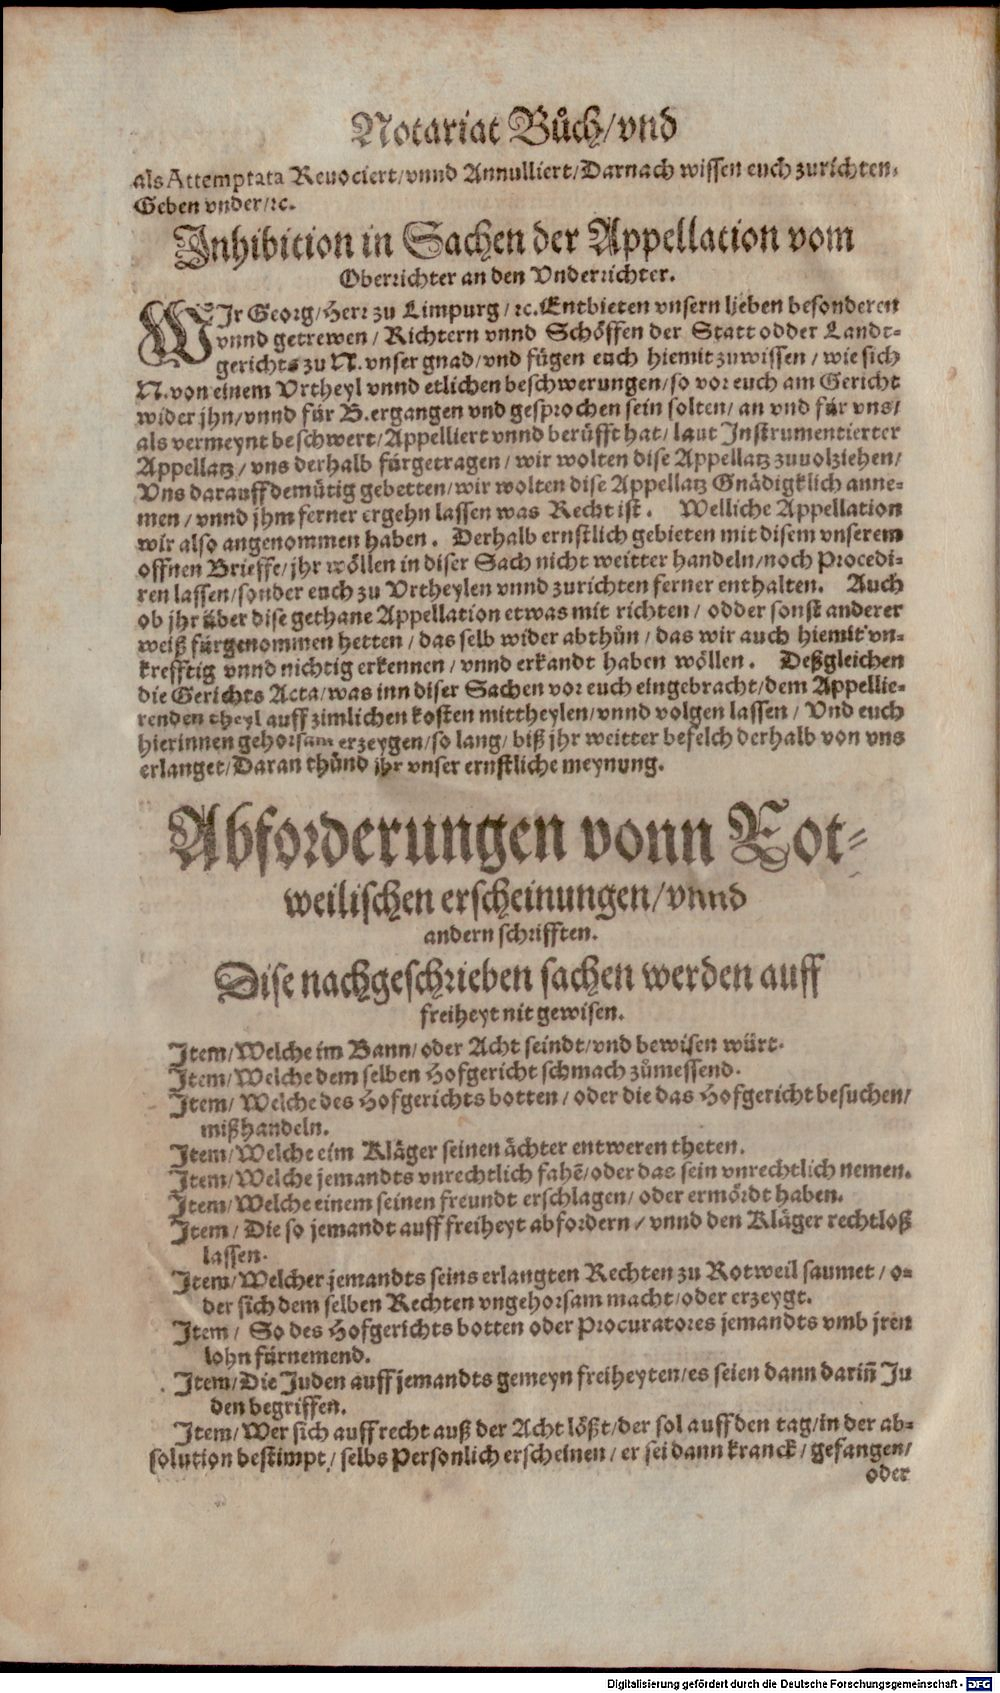 Notariat Bůch/vnd
als Attemptata Reuociert/vnnd Annulliert/Darnach wissen euch zurichten.
Geben vnder/ꝛc.
Inhibition in Sachen der Appellation vom
Oberrichter an den Vnderrichter.
WIr Georg/Herr zu Limpurg/ꝛc.Entbieten vnsern lieben besonderen
vnnd getrewen/Richtern vnnd Schöffen der Statt odder Landt-
gerichts zu N.vnser gnad/vnd fügen euch hiemit zuwissen/wie sich
N.von einem Vrtheyl vnnd etlichen beschwerungen/so vor euch am Gericht
wider jhn/vnnd für B.ergangen vnd gesprochen sein solten/an vnd für vns/
als vermeynt beschwert/Appelliert vnnd berüfft hat/laut Instrumentierter
Appellatz/vns derhalb fürgetragen/wir wolten dise Appellatz zuuolziehen/
Vns darauff demütig gebetten/wir wolten dise Appellatz Gnädigklich anne-
men/vnnd jhm ferner ergehn lassen was Recht ist. Welliche Appellation
wir also angenommen haben. Derhalb ernstlich gebieten mit disem vnserem
offnen Brieffe/jhr wöllen in diser Sach nicht weitter handeln/noch Procedi-
ren lassen/sonder euch zu Vrtheylen vnnd zurichten ferner enthalten. Auch
ob jhr über dise gethane Appellation etwas mit richten/odder sonst anderer
weiß fürgenommen hetten/das selb wider abthůn/das wir auch hiemit vn-
krefftig vnnd nichtig erkennen/vnnd erkandt haben wöllen. Deßgleichen
die Gerichts Acta/was inn diser Sachen vor euch eingebracht/dem Appellie-
renden theyl auff zimlichen kosten mittheylen/vnnd volgen lassen/Vnd euch
hierinnen gehorsam erzeygen/so lang/biß jhr weitter befelch derhalb von vns
erlanget/Daran thůnd jhr vnser ernstliche meynung.
Abforderungen vonn Rot-
weilischen erscheinungen/vnnd
andern schrifften.
Dise nachgeschrieben sachen werden auff
freiheyt nit gewisen.
Item/Welche im Bann/oder Acht seindt/vnd bewisen würt.
Item/Welche dem selben Hofgericht schmach zůmessend.
Item/Welche des Hofgerichts botten/oder die das Hofgericht besuchen/
mißhandeln.
Item/Welche eim Kläger seinen ächter entweren theten.
Item/Welche jemandts vnrechtlich fahē/oder das sein vnrechtlich nemen.
Item/Welche einem seinen freundt erschlagen/oder ermördt haben.
Item/Die so jemandt auff freiheyt abfordern/vnnd den Kläger rechtloß
lassen.
Item/Welcher jemandts seins erlangten Rechten zu Rotweil saumet/o-
der sich dem selben Rechten vngehorsam macht/oder erzeygt.
Item/So des Hofgerichts botten oder Procuratores jemandts vmb jren
lohn fürnemend.
Item/Die Juden auff jemandts gemeyn freiheyten/es seien dann darin̄ Ju
den begriffen.
Item/Wer sich auff recht auß der Acht lößt/der sol auff den tag/in der ab-
solution bestimpt/selbs Personlich erscheinen/er sei dann kranck/gefangen/
oder
Digitalisierung gefördert durch die Deutsche Forschungsgemeinschaft - DFG